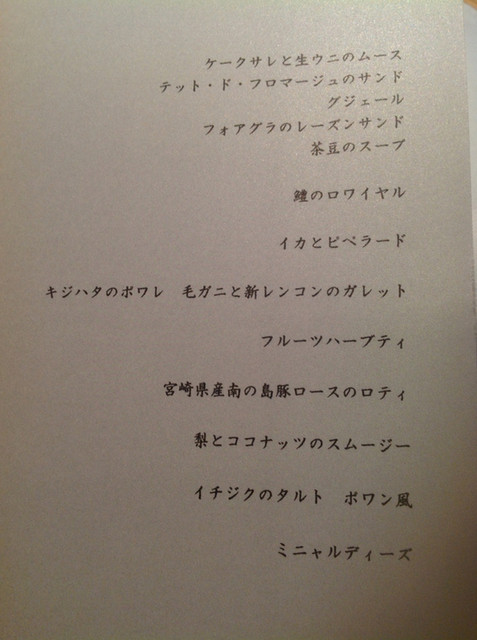 ケークサレと生ウニのムース
テット・ド・フロマージュのサンド
グジェール
フォアグラのレーズンサンド
茶豆のスープ
鱧のロワイヤル
イカとピペラード
キジハタのポワレ　毛ガニと新レンコンのガレット
フルーツハーブティ
宮崎県産南の島豚ロースのロティ
梨とココナッツのスムージー
イチジクのタルト　ポワン風
ミニャルディーズ